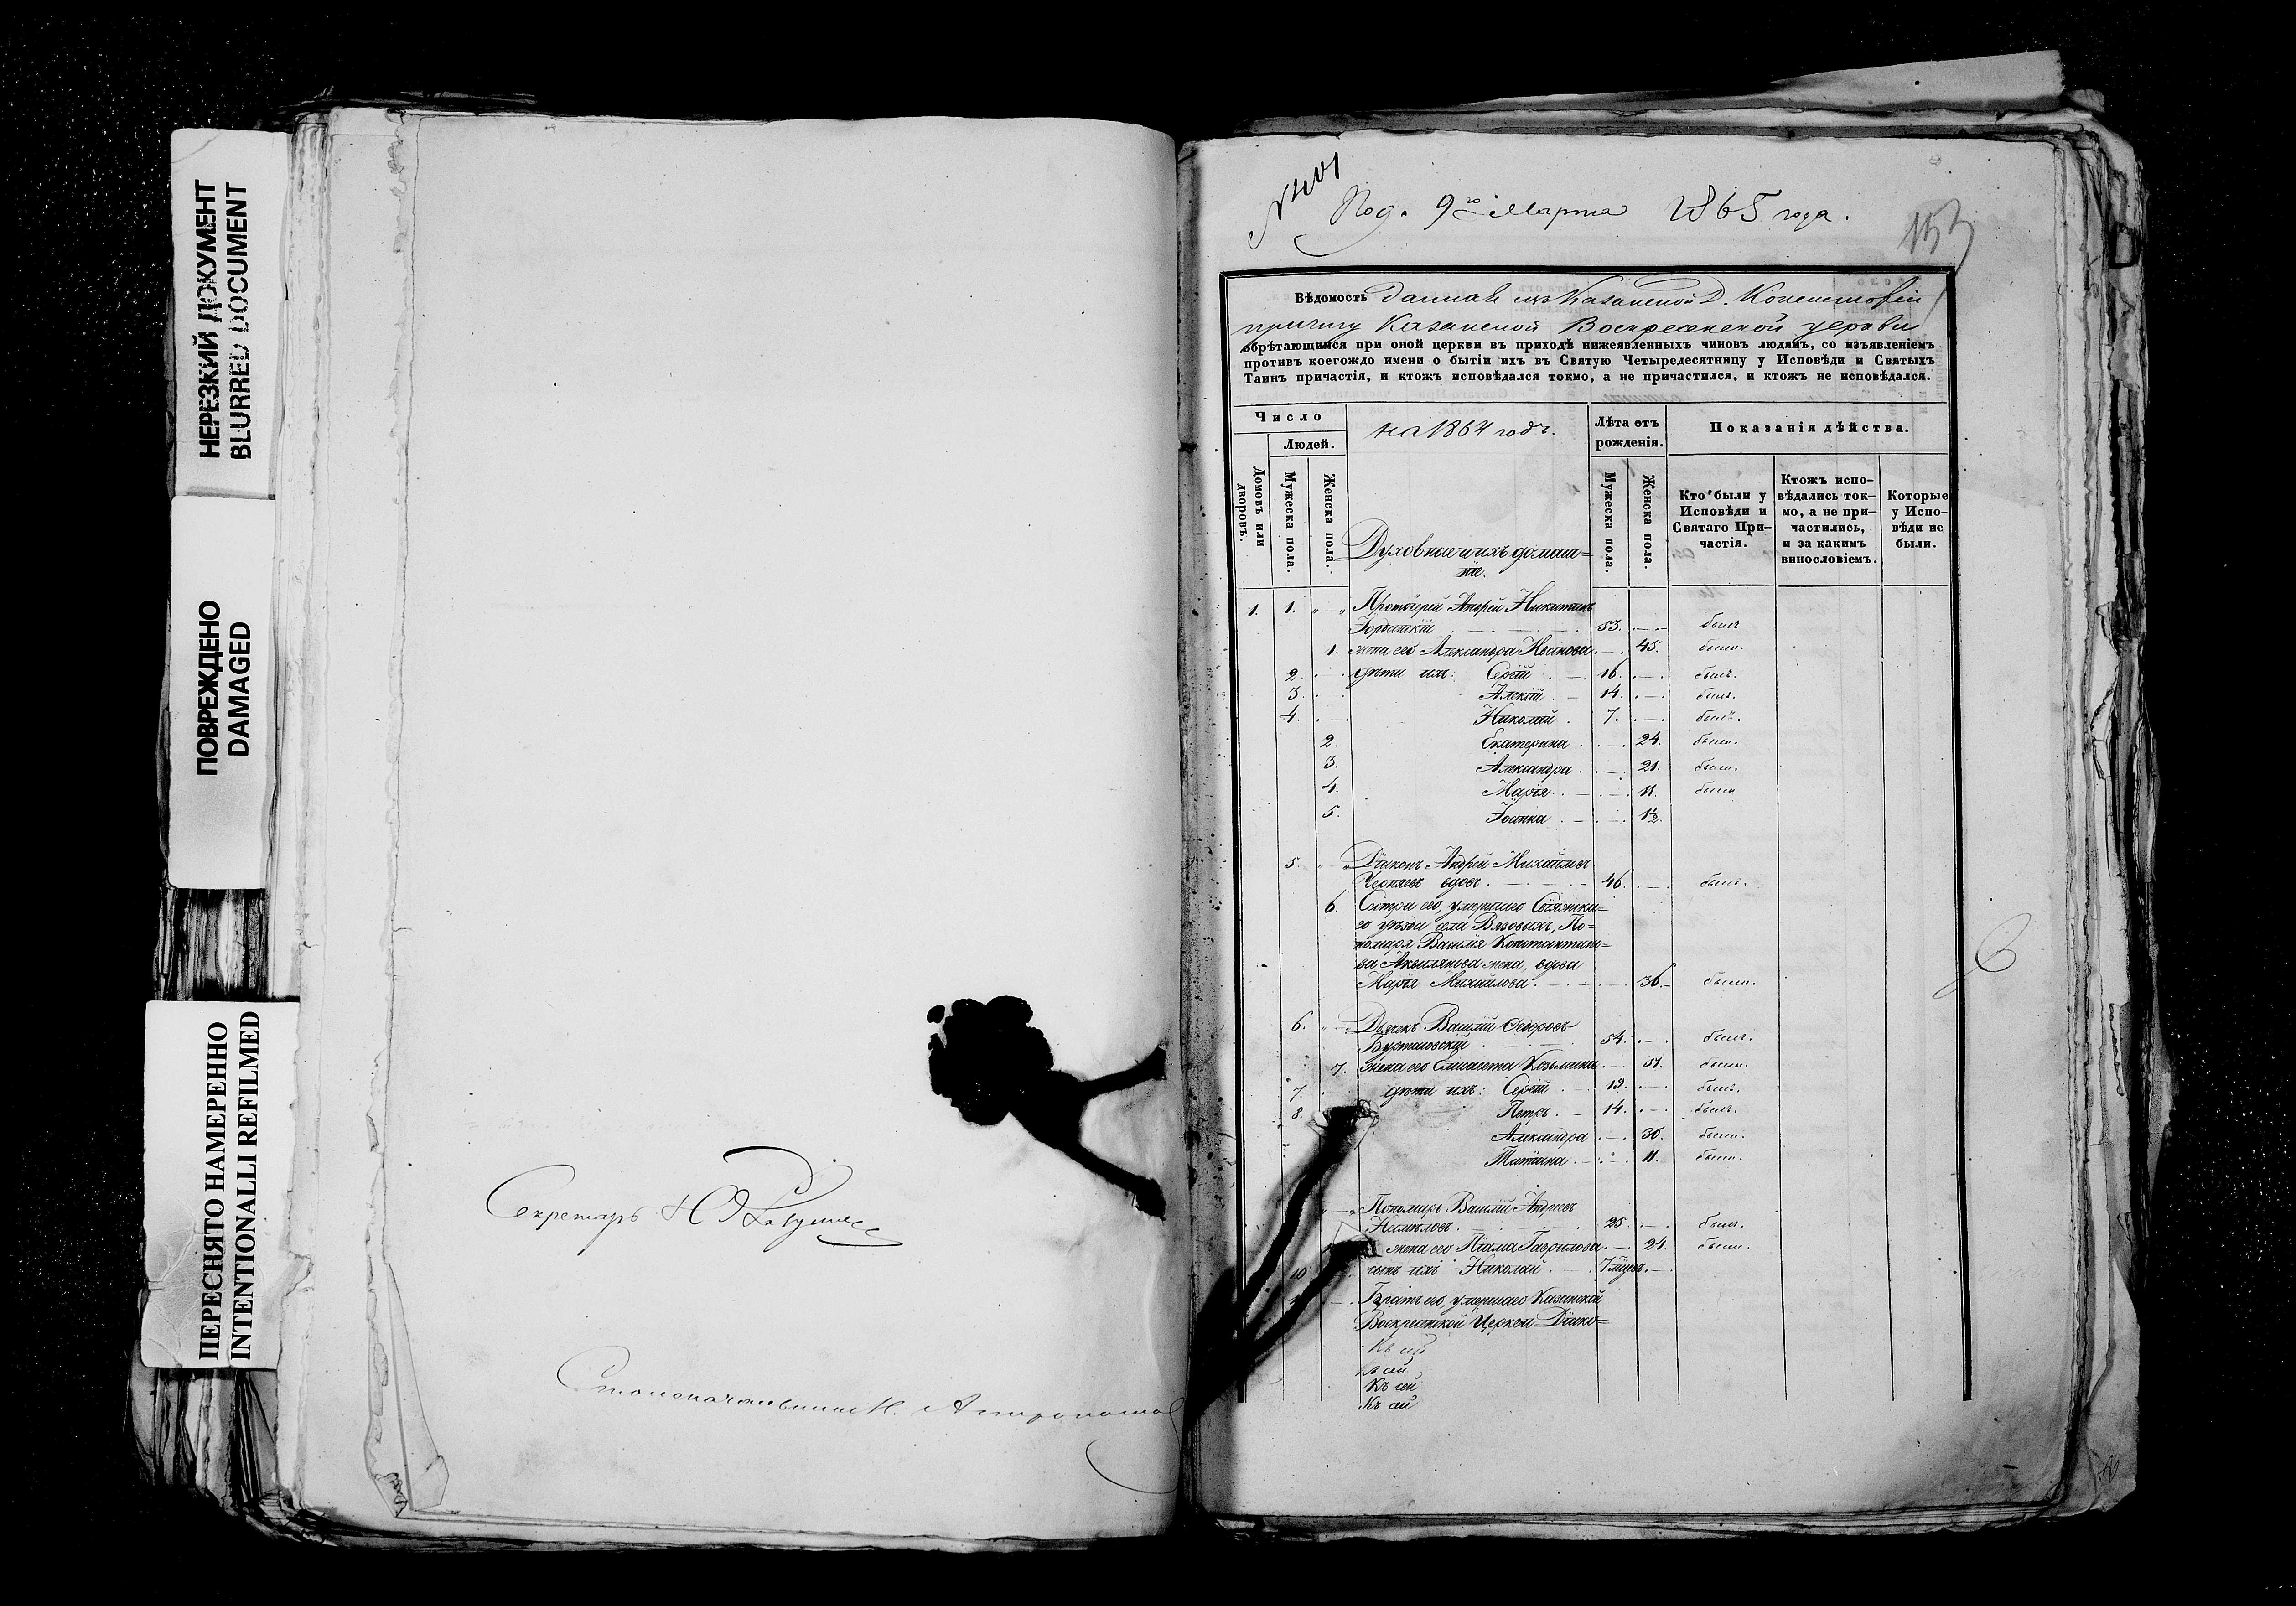 НЕРЕЗКИЙ ДОКУМЕНТ
BLURRED DOCUMENT
ПОВРЕЖДЕНО
DAMAGED
ПЕРЕСНЯТО НАМЕРЕННО
INTENTIONALLI REFILMED
Секретарь
Столоначальникъ Н.
№ 401
Под. 9го Марта 1865 года.
153
Вѣдомость данная изъ Казанской Д. Консисторіи
причту Казанской Воскресенской церкви
обрѣтающимся при оной церкви въ приходѣ нижеявленныхъ чиновъ людямъ, со изъявленіемъ
противъ коегождо имени о бытіи ихъ въ Святую Четыредесятницу у Исповѣди и Святыхъ
Таинъ причастія, и ктожъ исповѣдался токмо, а не причастился, и ктожъ не исповѣдался.
Число
Людей.
Домовъ или дворовъ.
Мужеска пола.
Женска пола.
на 1864 годъ.
Духовные и ихъ домаш=
ніе.
Лѣта отъ
рожденія.
Мужеска пола.
Женска пола.
Показанія дѣйства.
Кто были у
Исповѣди и
Святаго При-
частія.
Ктожъ испо-
вѣдались ток-
мо, а не при-
частились,
и за какимъ
винословіемъ.
Которые
у Испо-
вѣди не
были.
1. 1. „ — „ Протоіерей Андрей Никитинъ
53. . — . былъ
1. жена его Александра Иванова . — . 45. была.
2. дѣти ихъ: Сергій . — 16. . — . былъ.
3. Алексій . — 14. . — . былъ.
4. . — . Николай . 7. . — . былъ.
2. Екатерина . . — . 24. была.
3. Александра . . — . 21. была.
4. Марія . — . — . 11. была
5. Іоанна . — . — . 1½.
5. „ — „ Діаконъ Андрей Михайловъ
вдовъ . — . — . 46. . — . былъ.
6. Сестра его, умершаго Свіяжска=
го уѣзда села Вязовыхъ, По=
номаря Василія Константино=
ва жена, вдова
Марія Михайлова . — . — . 36. — была.
6. „ — „ Дьячекъ Василій Ѳедоровъ
54. . — . былъ.
7. жена его Елисавета Козьмина . — . 51. была.
7. дѣти ихъ: Сергій . — 19. . — . былъ.
8. Петръ . — 14. . — . былъ.
Александра . — . 30. была.
Татіана . — . — . 11. была.
„ — „ Пономарь Василій Андреевъ
25. . — . былъ.
жена его Гаврилова . — . 24. была.
10 сынъ ихъ Николай . — . 7 мѣсяц. —
— . Братъ его, умершаго Казанской
Воскресенской Церкви Діако=
Къ сей
къ сей
Къ сей
Къ сей